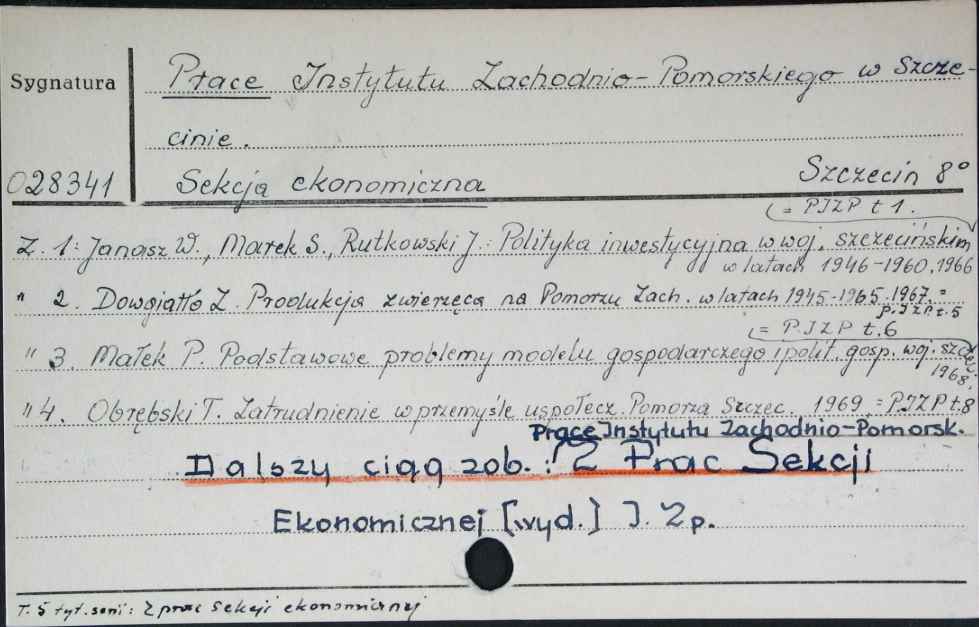 Sygnatura
Prace Instytutu Zachodnio-Pomorskiego w Szcze-
cinie.
028341
Sekcja ekonomiczna
Szczecin 8°
(= PIZP t 1.
Z. 1: Janasz W., Marek S., Rutkowski J.: Polityka inwestycyjna w woj. szczecińskim
w latach 1946-1960, 1966
" 2. Dowgiałło Z. Produkcja zwierzęca na Pomorzu Zach. w latach 1945-1965. 1967. =
P.IZP. t. 5
(= P.IZP t. 6
" 3. Małek P. Podstawowe problemy modelu gospodarczego i polit. gosp. woj. szczec.
1968.
" 4. Obrębski T. Zatrudnienie w przemyśle uspołecz. Pomorza Szczec. 1969. = P.IZP t. 8
Prace Instytutu Zachodnio-Pomorsk.
Dalszy ciąg zob.: Z Prac Sekcji
Ekonomicznej [wyd.] I. Zp.
T. 5 tyt. serii: Z prac sekcji ekonomicznej